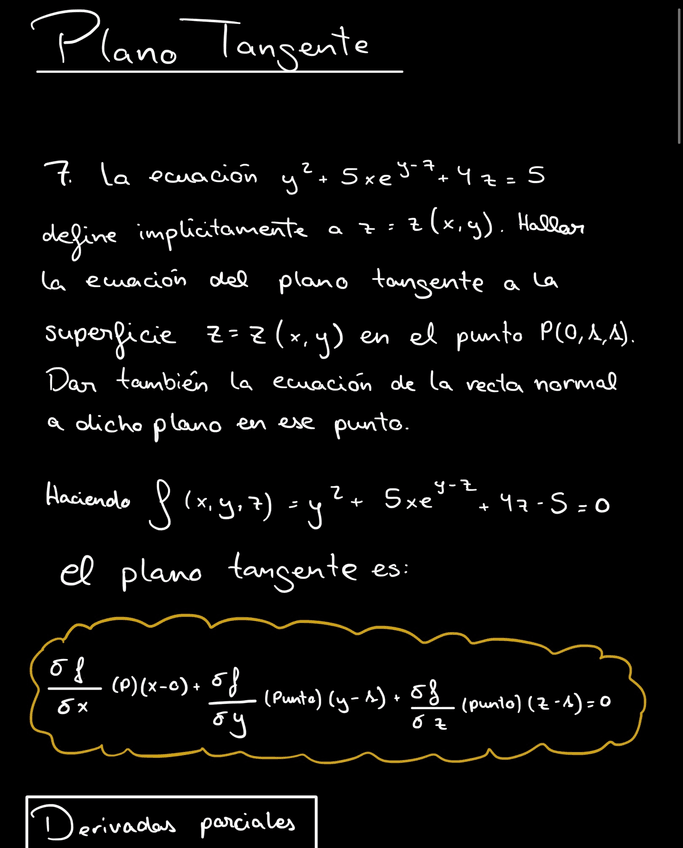 Plano Tangente
7. La ecuación y² + 5xe^{y-z} + 4z = 5
define implícitamente a z = z(x,y). Hallar
la ecuación del plano tangente a la
superficie z = z(x,y) en el punto P(0,1,1).
Dar también la ecuación de la recta normal
a dicho plano en ese punto.
Haciendo f(x,y,z) = y² + 5xe^{y-z} + 4z - 5 = 0
el plano tangente es:
σf/σx (P)(x-0) + σf/σy (Punto)(y-1) + σf/σz (punto)(z-1) = 0
Derivadas parciales